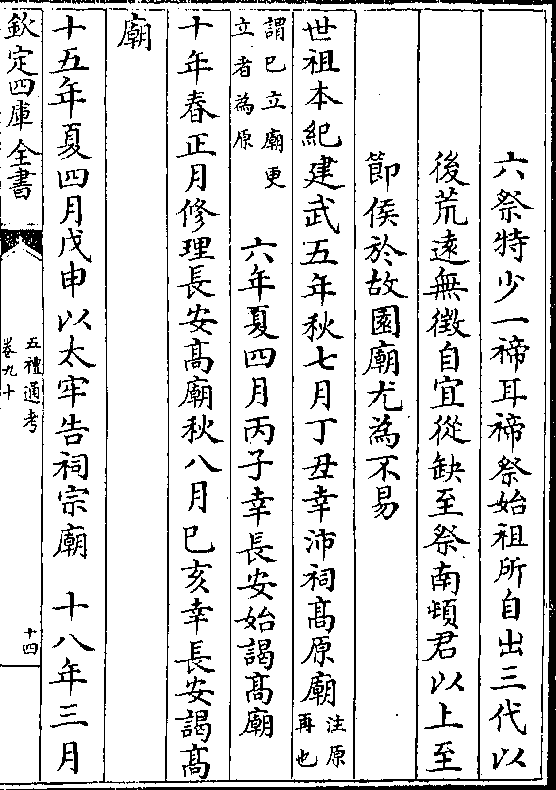 六祭特少一禘耳禘祭始祖所自出三代以
後荒遠無徴自宜從缺至祭南頓君以上至
節侯於故園廟尤為不易
世祖本紀建武五年秋七月丁丑幸沛祠髙原廟
注原
再也
謂已立廟更
立者為原
六年夏四月丙子幸長安始謁髙廟
十年春正月修理長安髙廟秋八月已亥幸長安謁髙
廟
十五年夏四月戊申以太牢告祠宗廟 十八年三月
欽定四庫全書
五禮通考
卷九十
十四